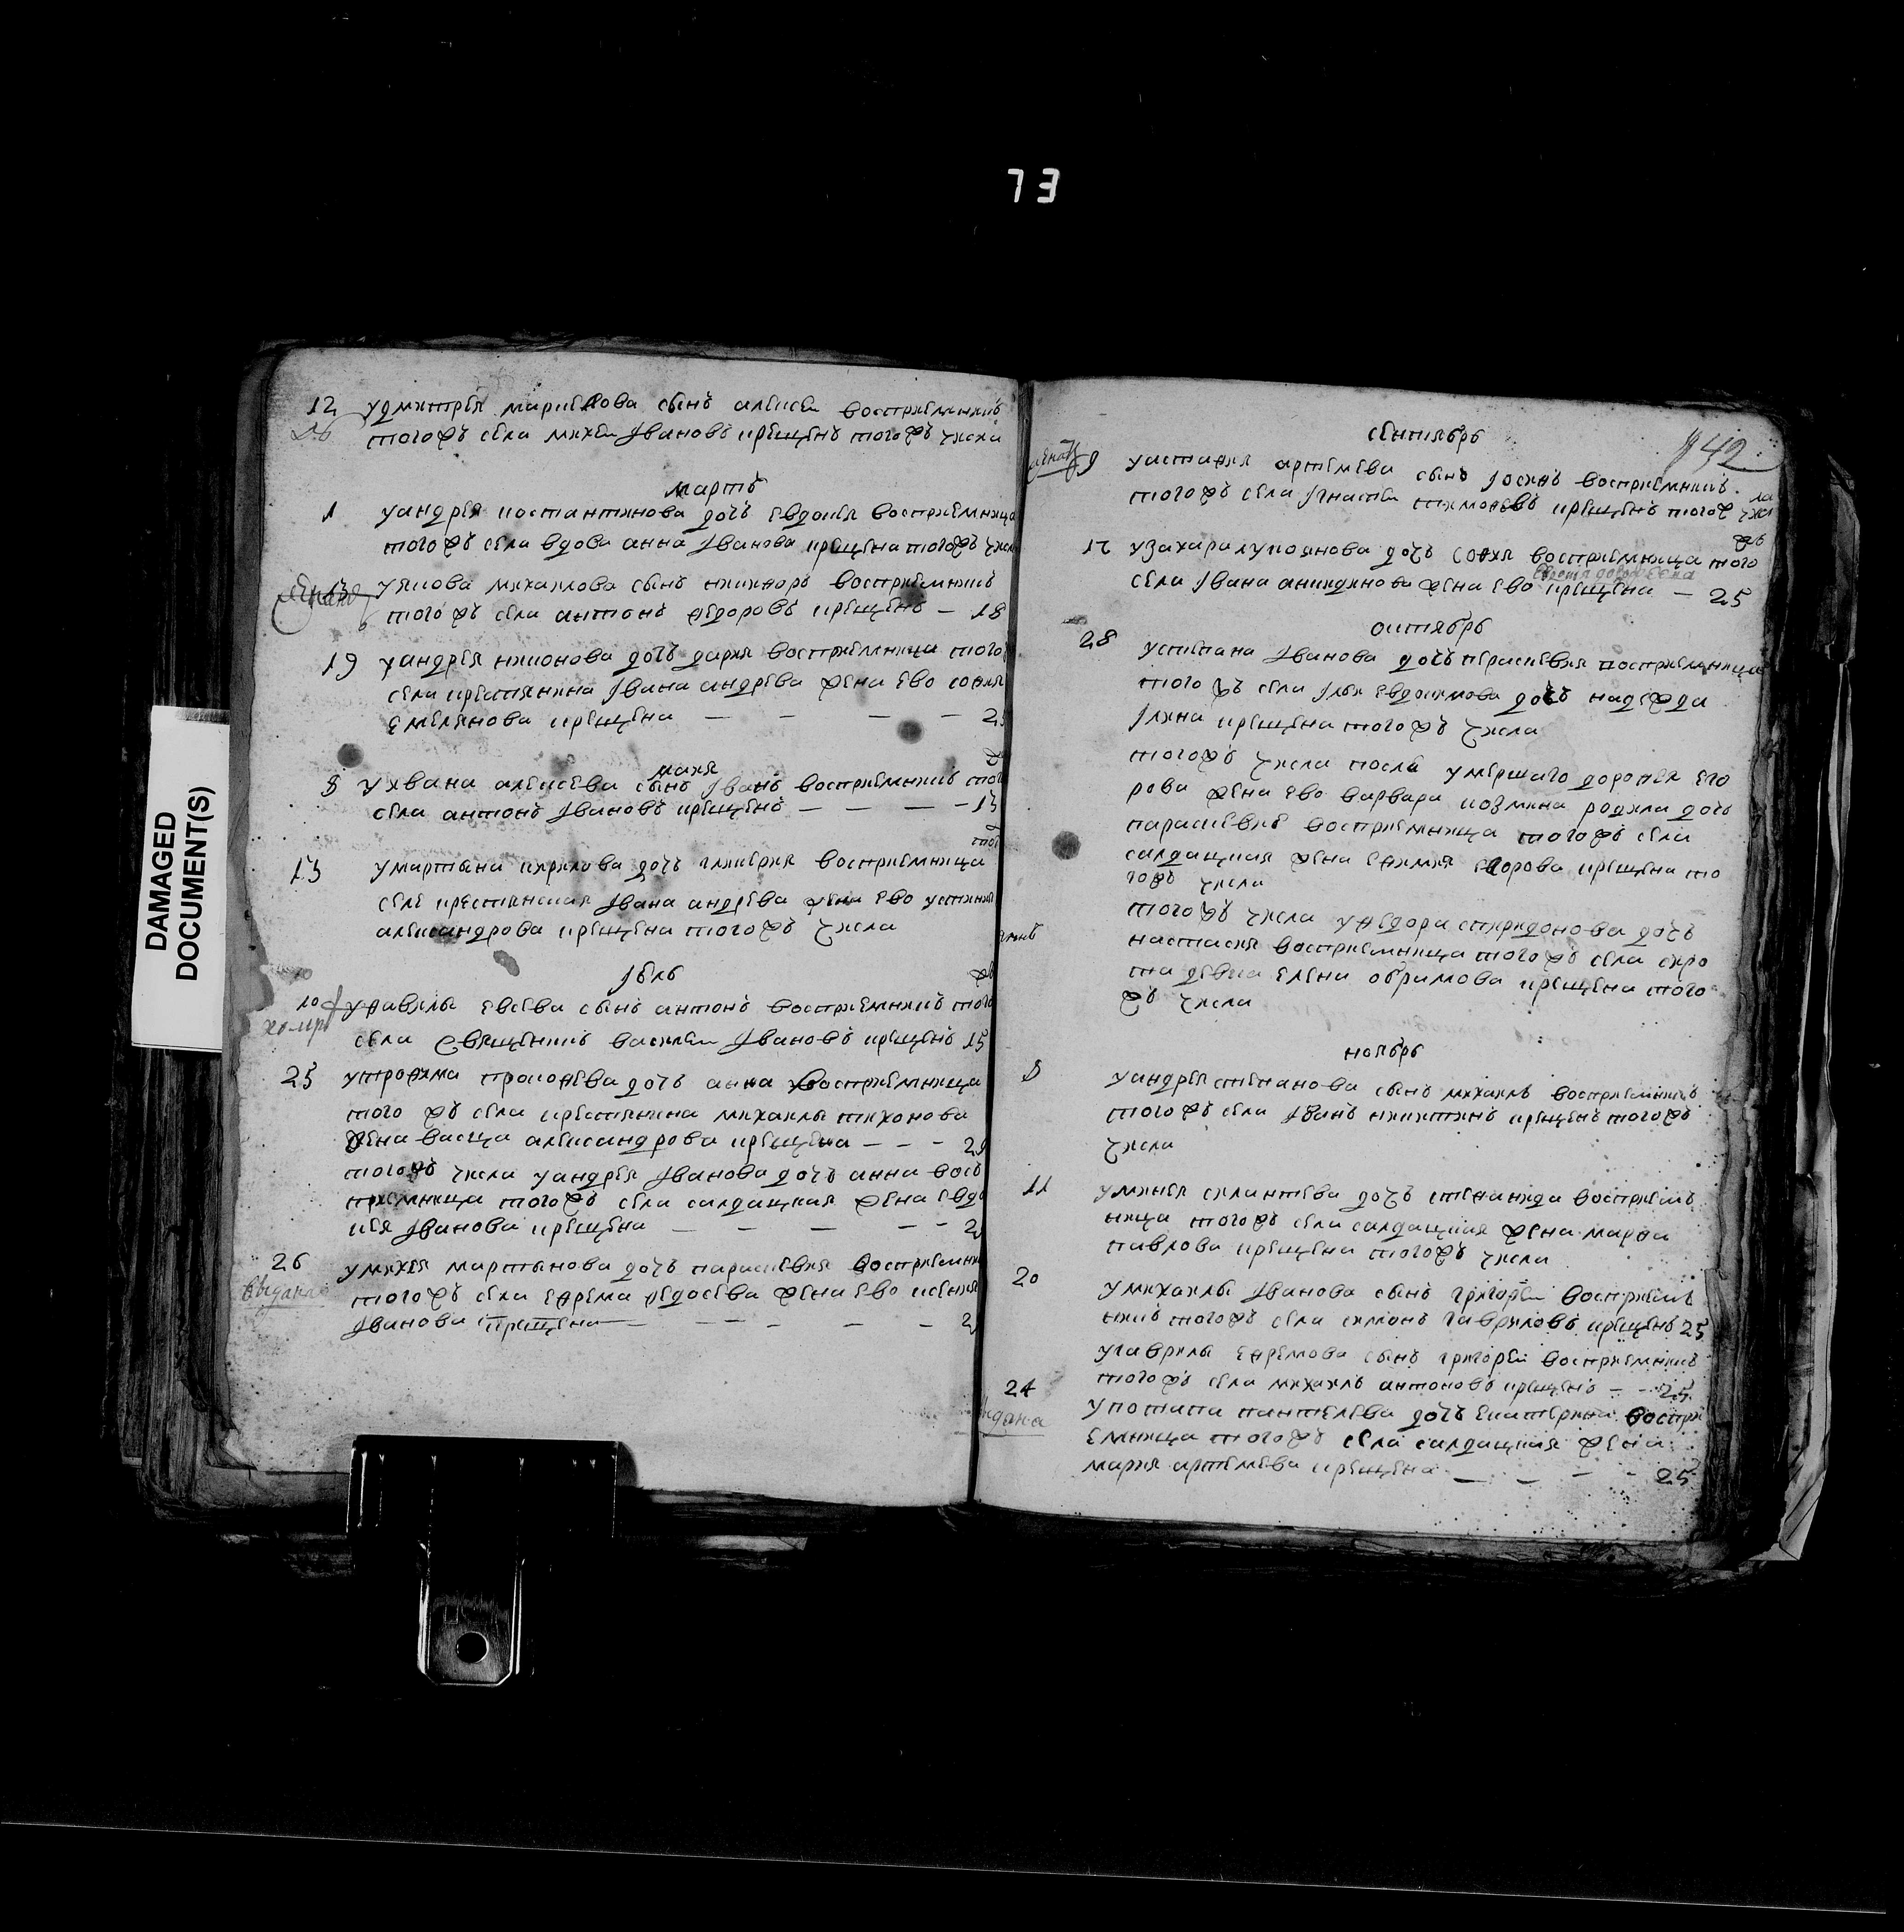 73
DAMAGED
DOCUMENT(S)
12 у дмитрея маркелова сынъ алексеи восприемникъ
того жъ села михеи Iвановъ крещенъ того жъ числа
мартъ
1 у андрея костантинова дочь евдокея восприемница
того жъ села вдова анна Iванова крещена того жъ числа
у якова михаилова сынъ никифоръ восприемникъ
того жъ села антонъ федоровъ крещенъ — 18
19 у андрея никонова дочь дария восприемница того
села крестянина Iвана андреева жена ево софия
емелянова крещена — — — — 2
маия
8 у ивана алексеева сынъ Iванъ восприемникъ того
села антонъ Iвановъ крещенъ — — — — 13
13 у мартына кирилова дочь гликерия восприемница
селе крестянская Iвана андреева жена ево устиния
александрова крещена того жъ числа
Iюль
10 у гаврилы евсева сынъ антонъ восприемникъ того
села священникъ василеи Iвановъ крещенъ 15
25 у трофима прокофева дочь анна восприемница
того жъ села крестянина михаилы тихонова
жена васса александрова крещена — — — 29
того жъ числа у андрея Iванова дочь анна вос
приемница того жъ села салдацкая жена евдо
кея Iванова крещена — — — — — 2
26 у михея мартынова дочь параскевия восприемни
выдана
того жъ села ефрема федосева жена ево ксения
Iванова крещена — — — — — — 2
сентябрь
142
9 у астафия артемева сынъ Iосифъ восприемникъ
того жъ села Iгнатеи тимофеевъ крещенъ того ж числа
17 у захара лупоянова дочь софия восприемница того
жъ
села Iвана аникиинова жена ево крещена — 25
октябрь
28 у степана Iванова дочь параскевия восприемница
того жъ села Iлья евдокимова дочь надежда
Iлина крещена того жъ числа
того жъ числа после умершаго дорофея его
рова жена ево варвара козмина родила дочь
параскевию восприемница того жъ села
салдацкая жена ефимия егорова крещена то
гожъ числа
того жъ числа у федора спиридонова дочь
настасия восприемница того жъ села сиро
та девка елена обрамова крещена того
жъ числа
ноябрь
8 у андрея степанова сынъ михаилъ восприемникъ
того жъ села Iванъ никитинъ крещенъ того жъ
числа
11 у минея силантева дочь степанида восприем
ница того жъ села салдацкая жена марфа
павлова крещена того жъ числа
20 у михаилы Iванова сынъ григореи восприем
никъ того жъ села симонъ гавриловъ крещенъ 25
у гаврилы ефремова сынъ григореи восприемникъ
того жъ села михаилъ антоновъ крещенъ — — 25
24 у потапа пантелева дочь екатерина воспри
емница того жъ села салдацкая жена
мария артемева крещена — — — — 25